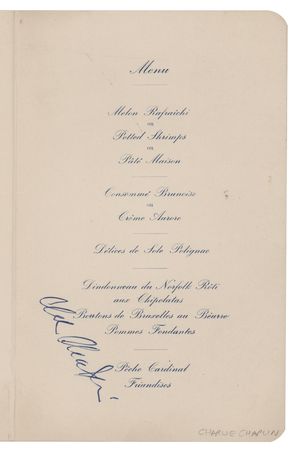 Menu
Melon Rafraîchi
ou
Potted Shrimps
ou
Pâté Maison
Consommé Brunoise
ou
Crème Aurore
Délices de Sole Polignac
Dindonneau du Norfolk Rôti
aux Chipolatas
Boutons de Bruxelles au Béurre
Pommes Fondantes
Pêche Cardinal
Friandises
CHARLIE CHAPLIN